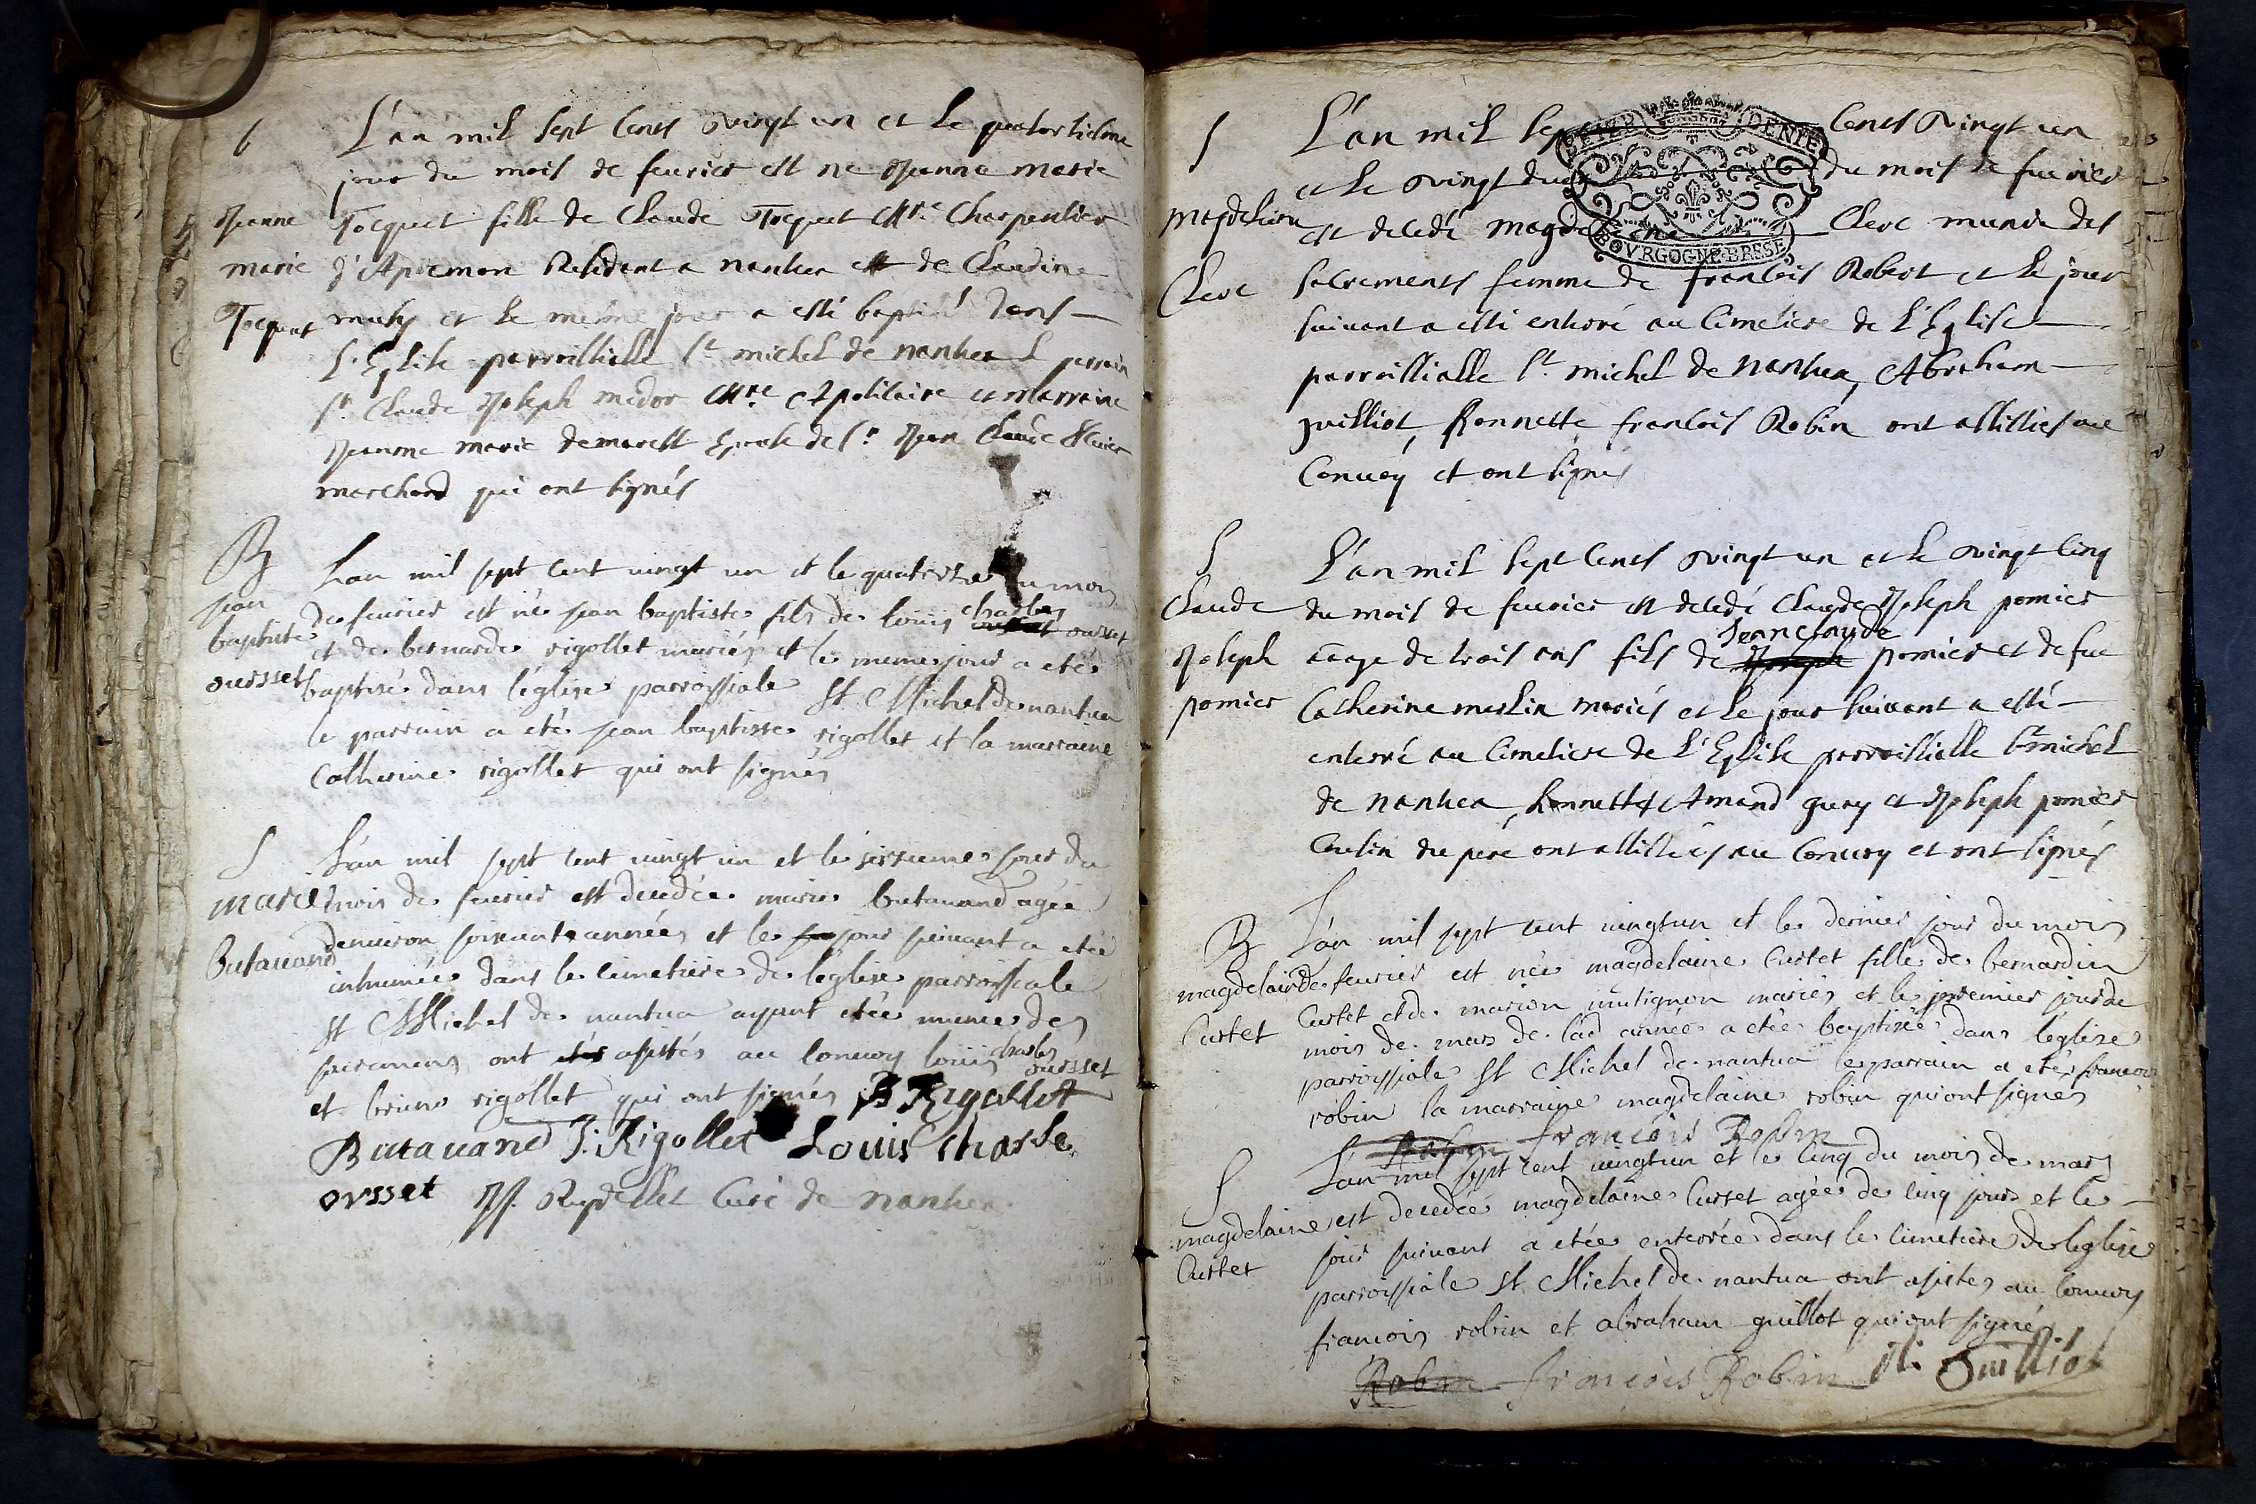 b
L'an mil sept cents vingt un et le quatorsiesme
jour du mois de feurier est ne Jeanne marie
Jeanne
Tocquet fille de Claude Tocquet Mre Charpentier
marie
d'Apremon Resident a nantua et de Claudine
Tocquet
et le mesme jour a esté baptisé dans
L'Eglise parroissialle St michel de nantua L parrain
Sr Claude Joseph medor Mre Apoticaire et marraine
Jeanne marie demarest Epouse de Sr Jean Claude
marchand qui ont signés
B
L'an mil sept cent uingt un et le quatorze du mois
jean
de feurier est né jean baptiste fils de louis charles oursset
baptiste
et de bernarde rigollet mariés et le meme jour a eté
oursset
baptisé dans l'église parroissiale St Michel de nantua
le parrain a eté jean baptiste rigollet et la marraine
Catherine rigollet qui ont signés
S
L'an mil sept cent uingt un et le seizieme jour du
marie
mois de feurier est decedée marie butauand agée
Butauand
denuiron soixante années et le jour suiuant a etée
inhumée dans le cimetiere de l'église parroissiale
St Michel de nantua ayant etée munie des
sacremens ont asistés au conuoy louis charles oursset
et bruno rigollet qui ont signés B Rigollet
Butauand J: Rigollet Louis Charle
ovsset Curé de nantua
S
L'an mil sept cents vingt un
et le vingt du mois de feurier
Magdeleine
est decedé magdeleine Clerc munie des
Clerc
sacrements femme de francois Robert et le jour
suiuant a esté enterré au Cimetiere de L'Eglise
parroissialle St michel de nantua, Abraham
guilliot, honnette francois Robin ont assistés au
Conuoy et ont signés
S
L'an mil sept cents vingt un et le vingt cinq
Claude
du mois de feurier est decedé Claude Joseph pomier
Joseph
aage de trois ans fils de Jean claude pomier et de fue
pomier
Catherine merlin mariés et le jour suiuant a esté
enterré au Cimetiere de L'Eglise parroissialle St michel
de nantua, honnettes Amand guey et Joseph pomier
Cousin du pere ont assistés au Conuoy et ont signés
B
L'an mil sept cent uingtun et le dernier jour du mois
magdelaine
de feurier est née magdelaine Curtet fille de bernardin
Curtet
Curtet et de marion mutignon mariés et le premier jour de
mois de mars de lad année a etée baptisée dans l'église
parroissiale St Michel de nantua le parrain a eté francois
robin la marraine magdelaine robin qui ont signés
Robin françois Robin
S
L'an mil sept cent uingtun et le cinq du mois de mars
magdelaine
est decedée magdelaine Curtet agée de cinq jours et le
Curtet
jour suiuant a etée enterrée dans le cimetiere de l'eglise
parroissiale St Michel de nantua ont asistes au conuoy
francois robin et abraham guillot qui ont signé
Robin françois Robin Guilliot